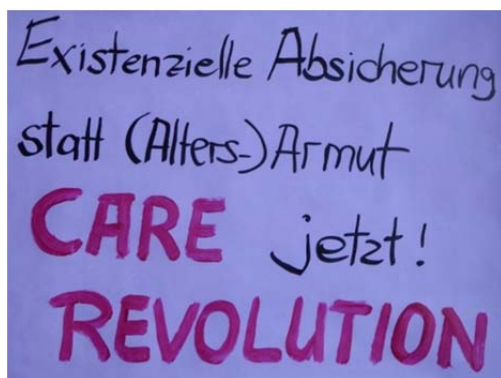 Existenzielle Absicherung
statt (Alters-) Armut
CARE jetzt!
REVOLUTION